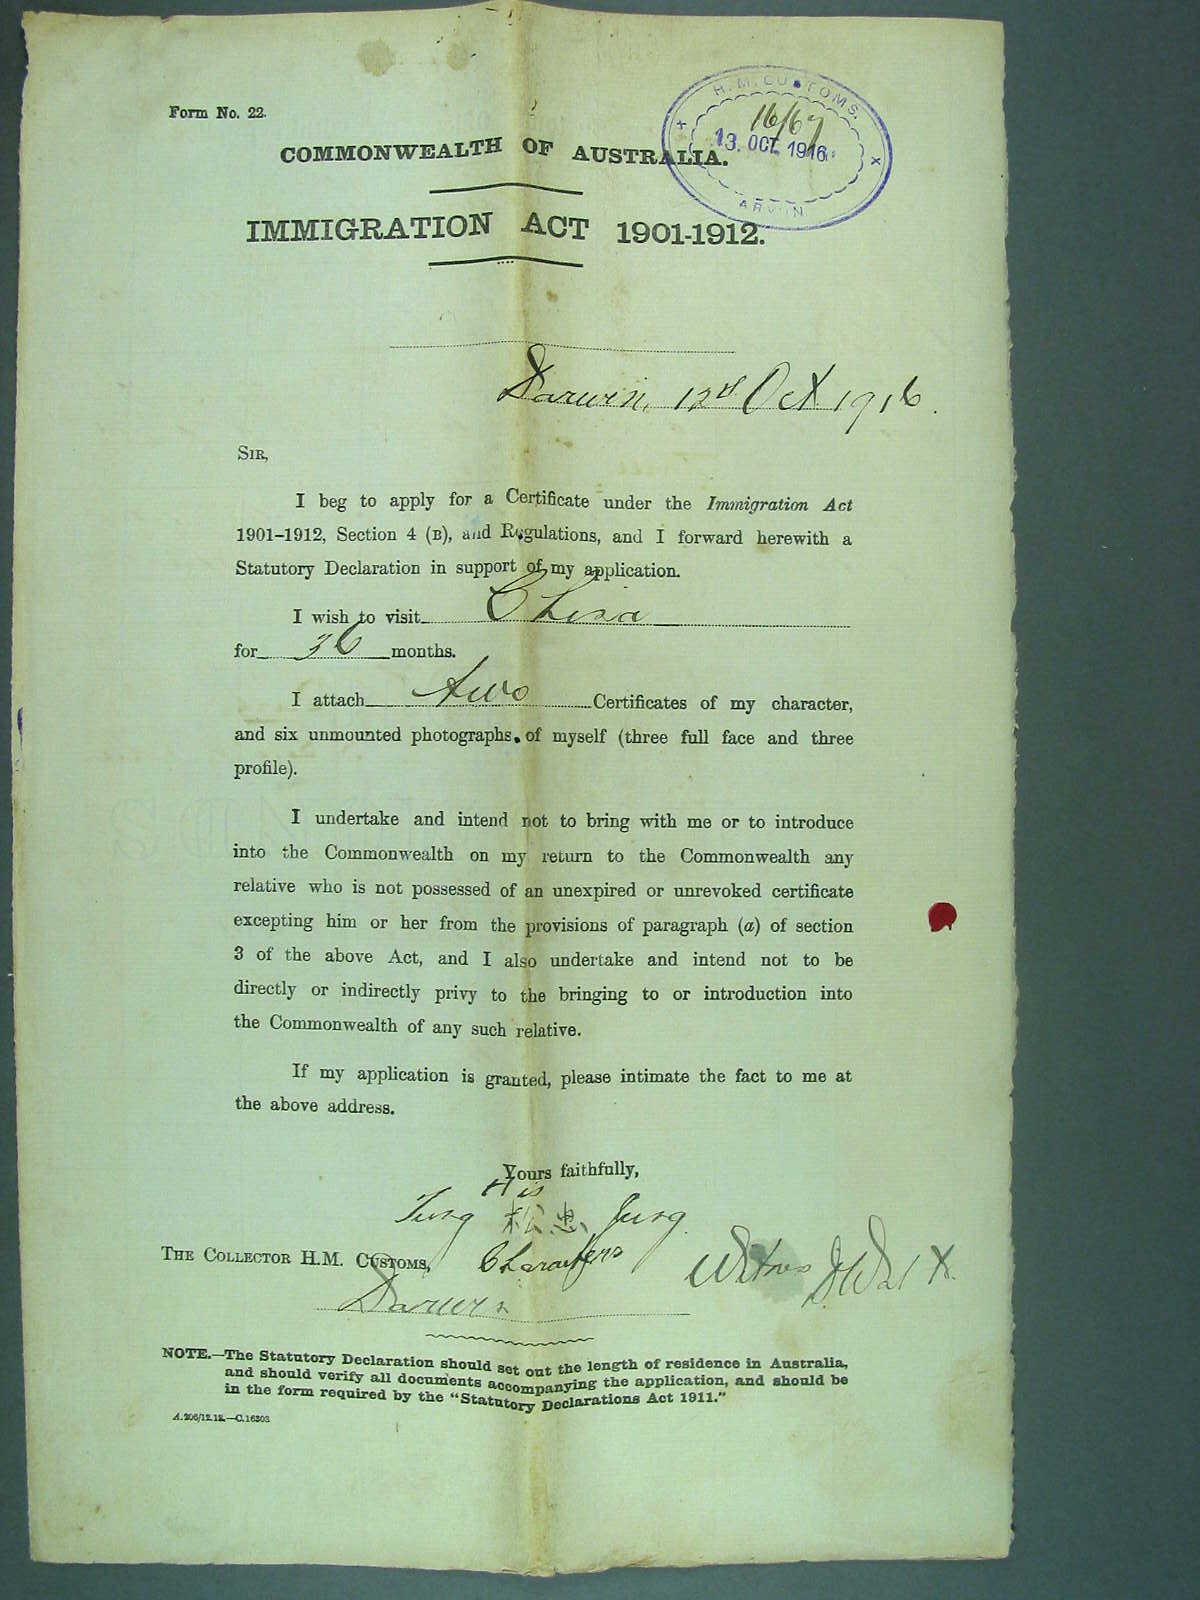 Form No. 22.
H. M. CUSTOMS.
16/67
13. OCT. 1916
ARWIN
COMMONWEALTH OF AUSTRALIA.
IMMIGRATION ACT 1901-1912.
Darwin, 12th Oct 1916.
SIR,
I beg to apply for a Certificate under the Immigration Act
1901–1912, Section 4 (B), and Regulations, and I forward herewith a
Statutory Declaration in support of my application.
I wish to visit China
for 36 months.
I attach two Certificates of my character,
and six unmounted photographs of myself (three full face and three
profile).
I undertake and intend not to bring with me or to introduce
into the Commonwealth on my return to the Commonwealth any
relative who is not possessed of an unexpired or unrevoked certificate
excepting him or her from the provisions of paragraph (a) of section
3 of the above Act, and I also undertake and intend not to be
directly or indirectly privy to the bringing to or introduction into
the Commonwealth of any such relative.
If my application is granted, please intimate the fact to me at
the above address.
Yours faithfully,
His
Tung Jung
Characters
THE COLLECTOR H.M. CUSTOMS,
Witness
Darwin
NOTE.—The Statutory Declaration should set out the length of residence in Australia,
and should verify all documents accompanying the application, and should be
in the form required by the "Statutory Declarations Act 1911."
A.206/12.12.—C.16303